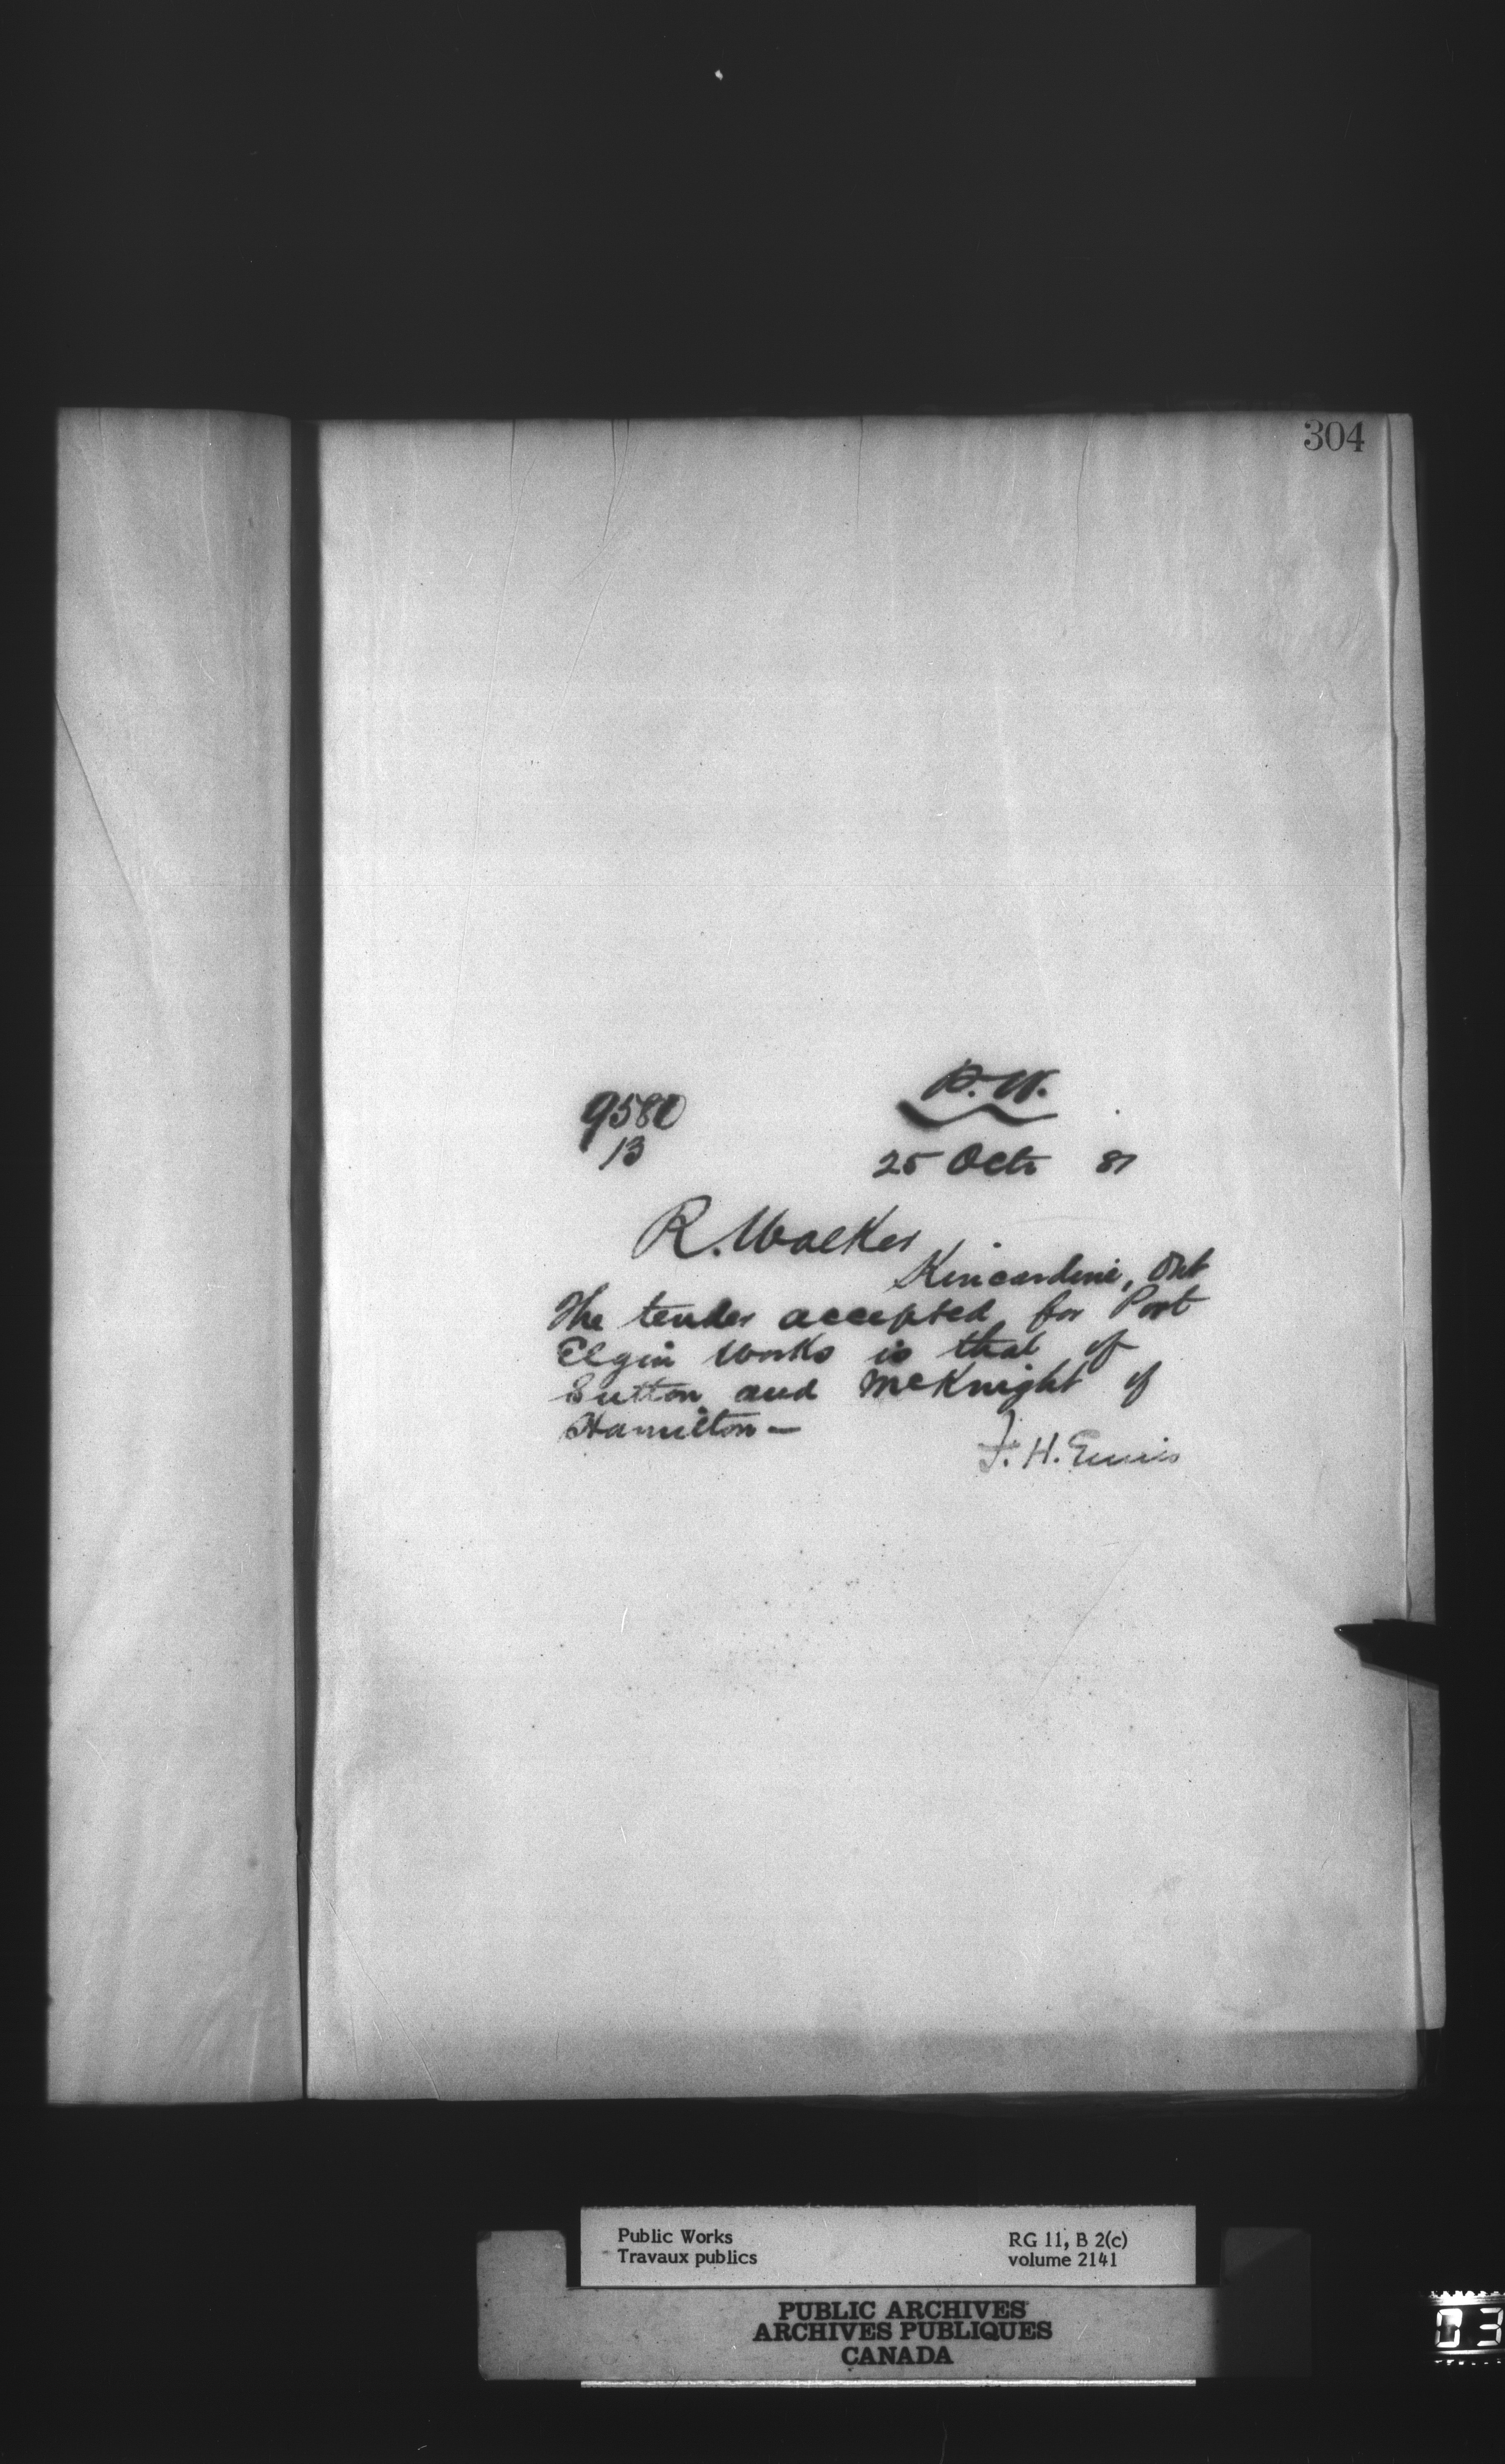 304
P.W.
9580
13
25 Octr 81
R. Walker
Kincardine, Ont
The tender accepted for Port
Elgin Works is that of
Sutton and McKnight of
Hamilton —
F. H. Ennis
Public Works
Travaux publics
RG 11, B 2(c)
volume 2141
PUBLIC ARCHIVES
ARCHIVES PUBLIQUES
CANADA
03